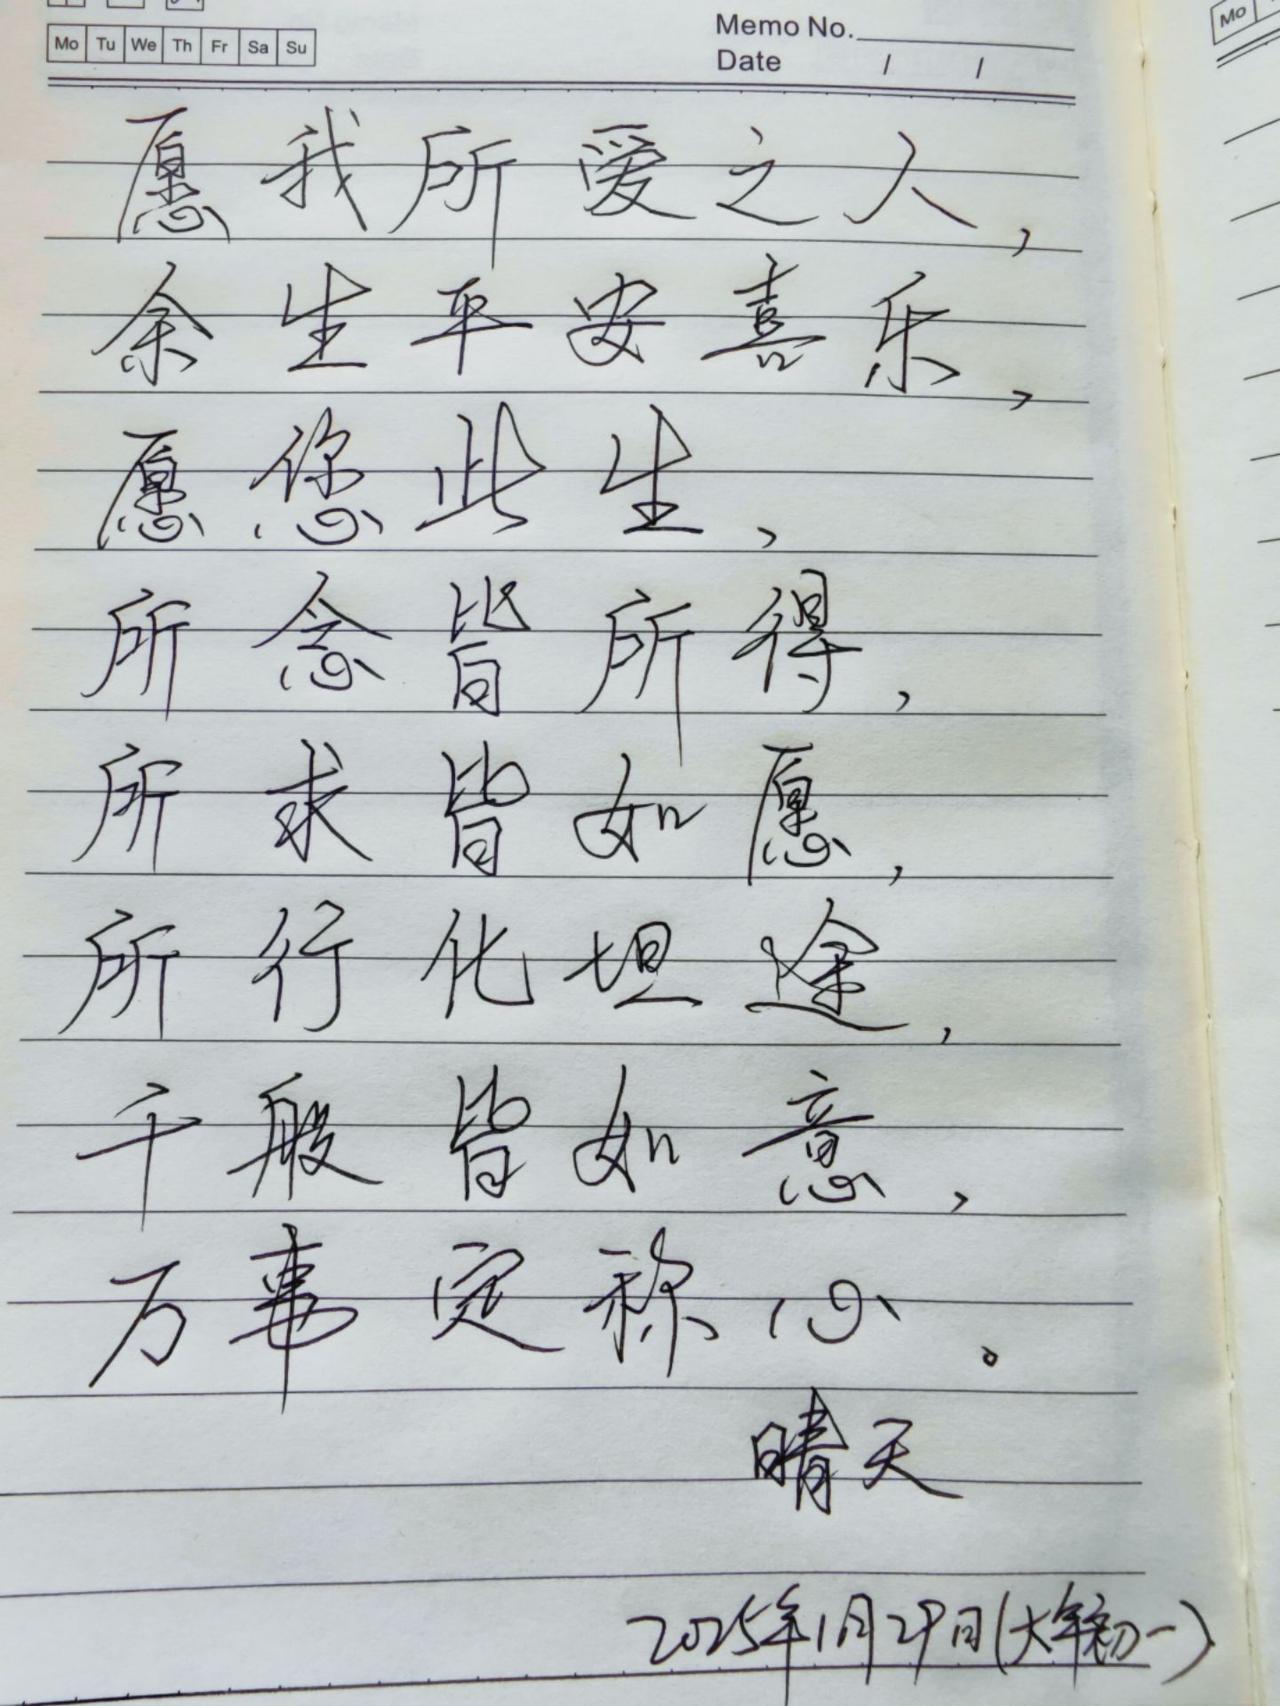 Mo Tu We Th Fr Sa Su
Memo No.
Date / /
Mo
愿我所爱之人,
余生平安喜乐,
愿您此生,
所念皆所得,
所求皆如愿,
所行化坦途,
千般皆如意,
万事定称心。
晴天
2025年1月29日(大年初一)